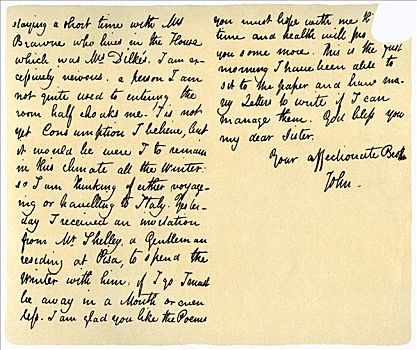 staying a short time with Mrs
Brawne who lives in the House
which was Mr Dilke's. I am ex-
cessively nervous. a person I am
not quite used to entering the
room half choaks me. 'Tis not
yet Consumption I believe, but
it would be were I to remain
in this climate all the Winter:
so I am thinking of either voyag-
ing or travelling to Italy. Yester-
day I received an invitation
from Mr Shelley, a Gentleman
residing at Pisa, to spend the
Winter with him. if I go I must
be away in a Month or even
less. I am glad you like the Poems
you must hope with me that
time and health will pro
you some more. This is the first
morning I have been able to
sit to the paper and have ma-
ny Letters to write if I can
manage them. God bless you
my dear Sister.
Your affectionate Brother
John